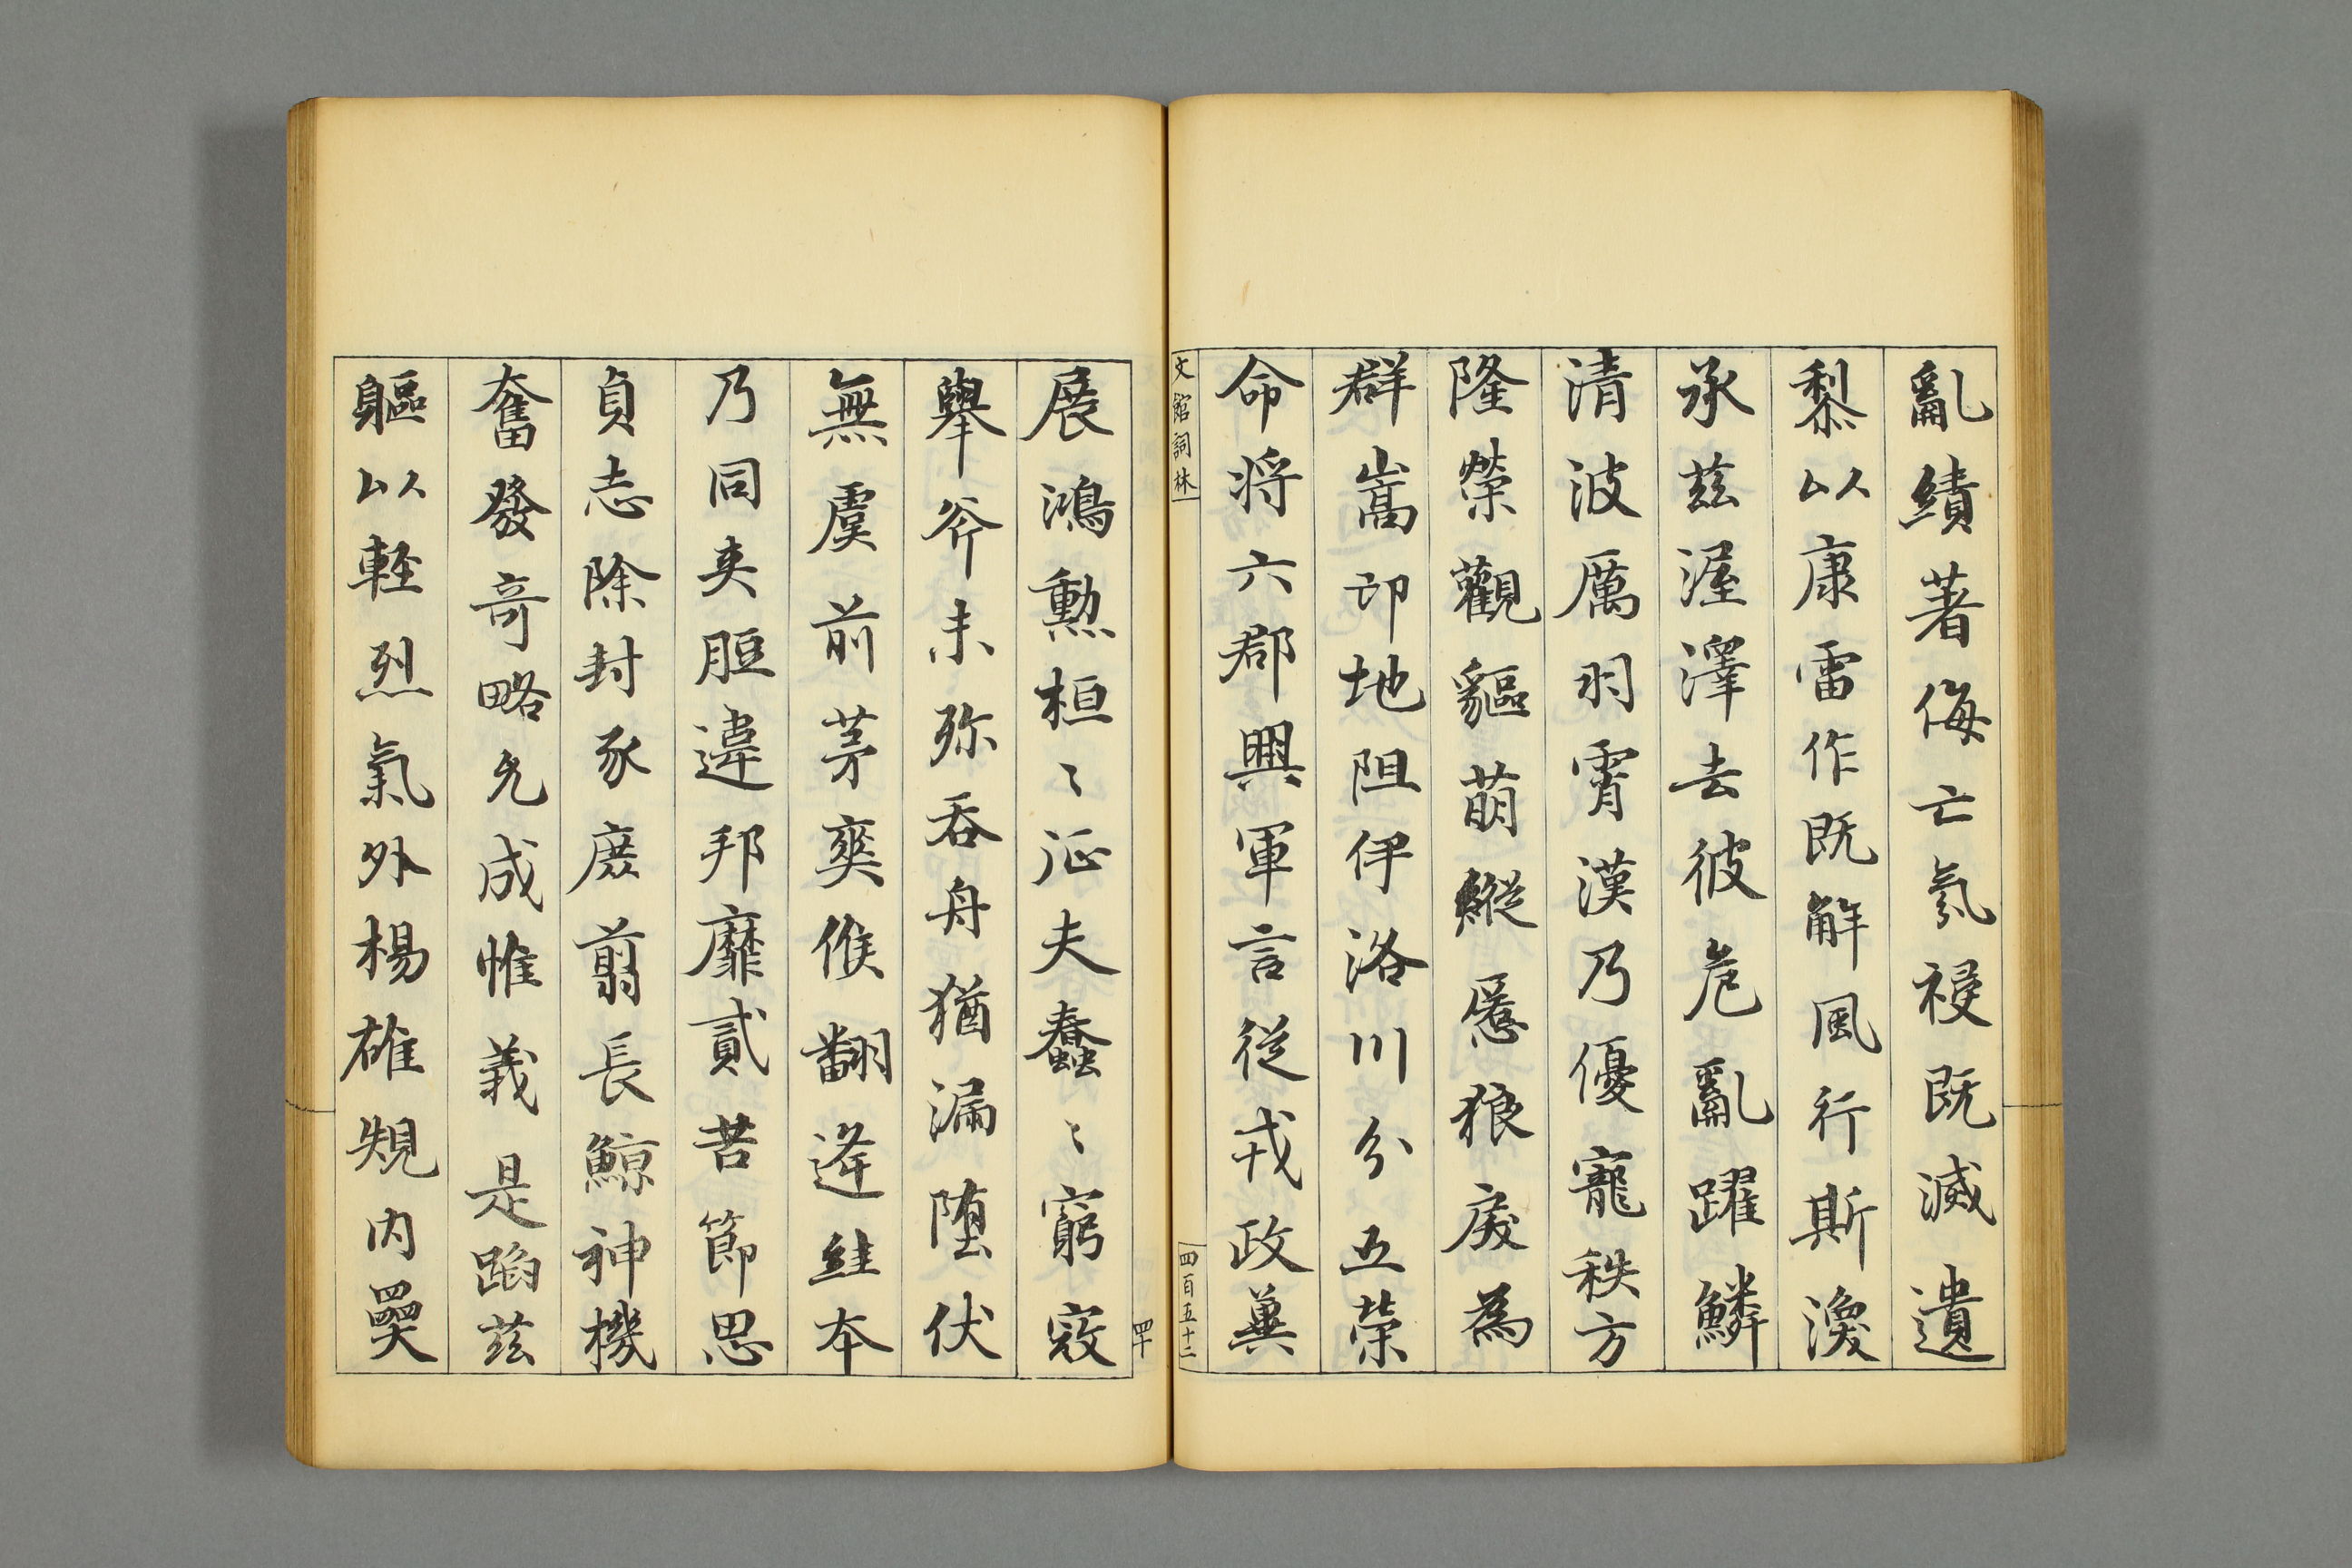 亂績著侮亡氛祲既滅遺
黎以康雷作既解風行斯渙
承茲渥澤去彼危亂躍鱗
清波厲羽霄漢乃優寵秩方
隆榮觀貙萌縱慝狼戾為
群嵩卭地阻伊洛川分五榮
命將六郡興軍言從戎政冀
文館詞林
四百五十二
四十
展鴻勳桓〻征夫蠢〻窮寇
舉斧未弥吞舟猶漏堕伏
無虞前茅爽候翻逢絓本
乃同夷脰違邦靡貳苦節思
貞志除封豕庶翦長鯨神機
奮發奇略允成惟義是蹈茲
軀以軽烈氣外楊雄規內㚅